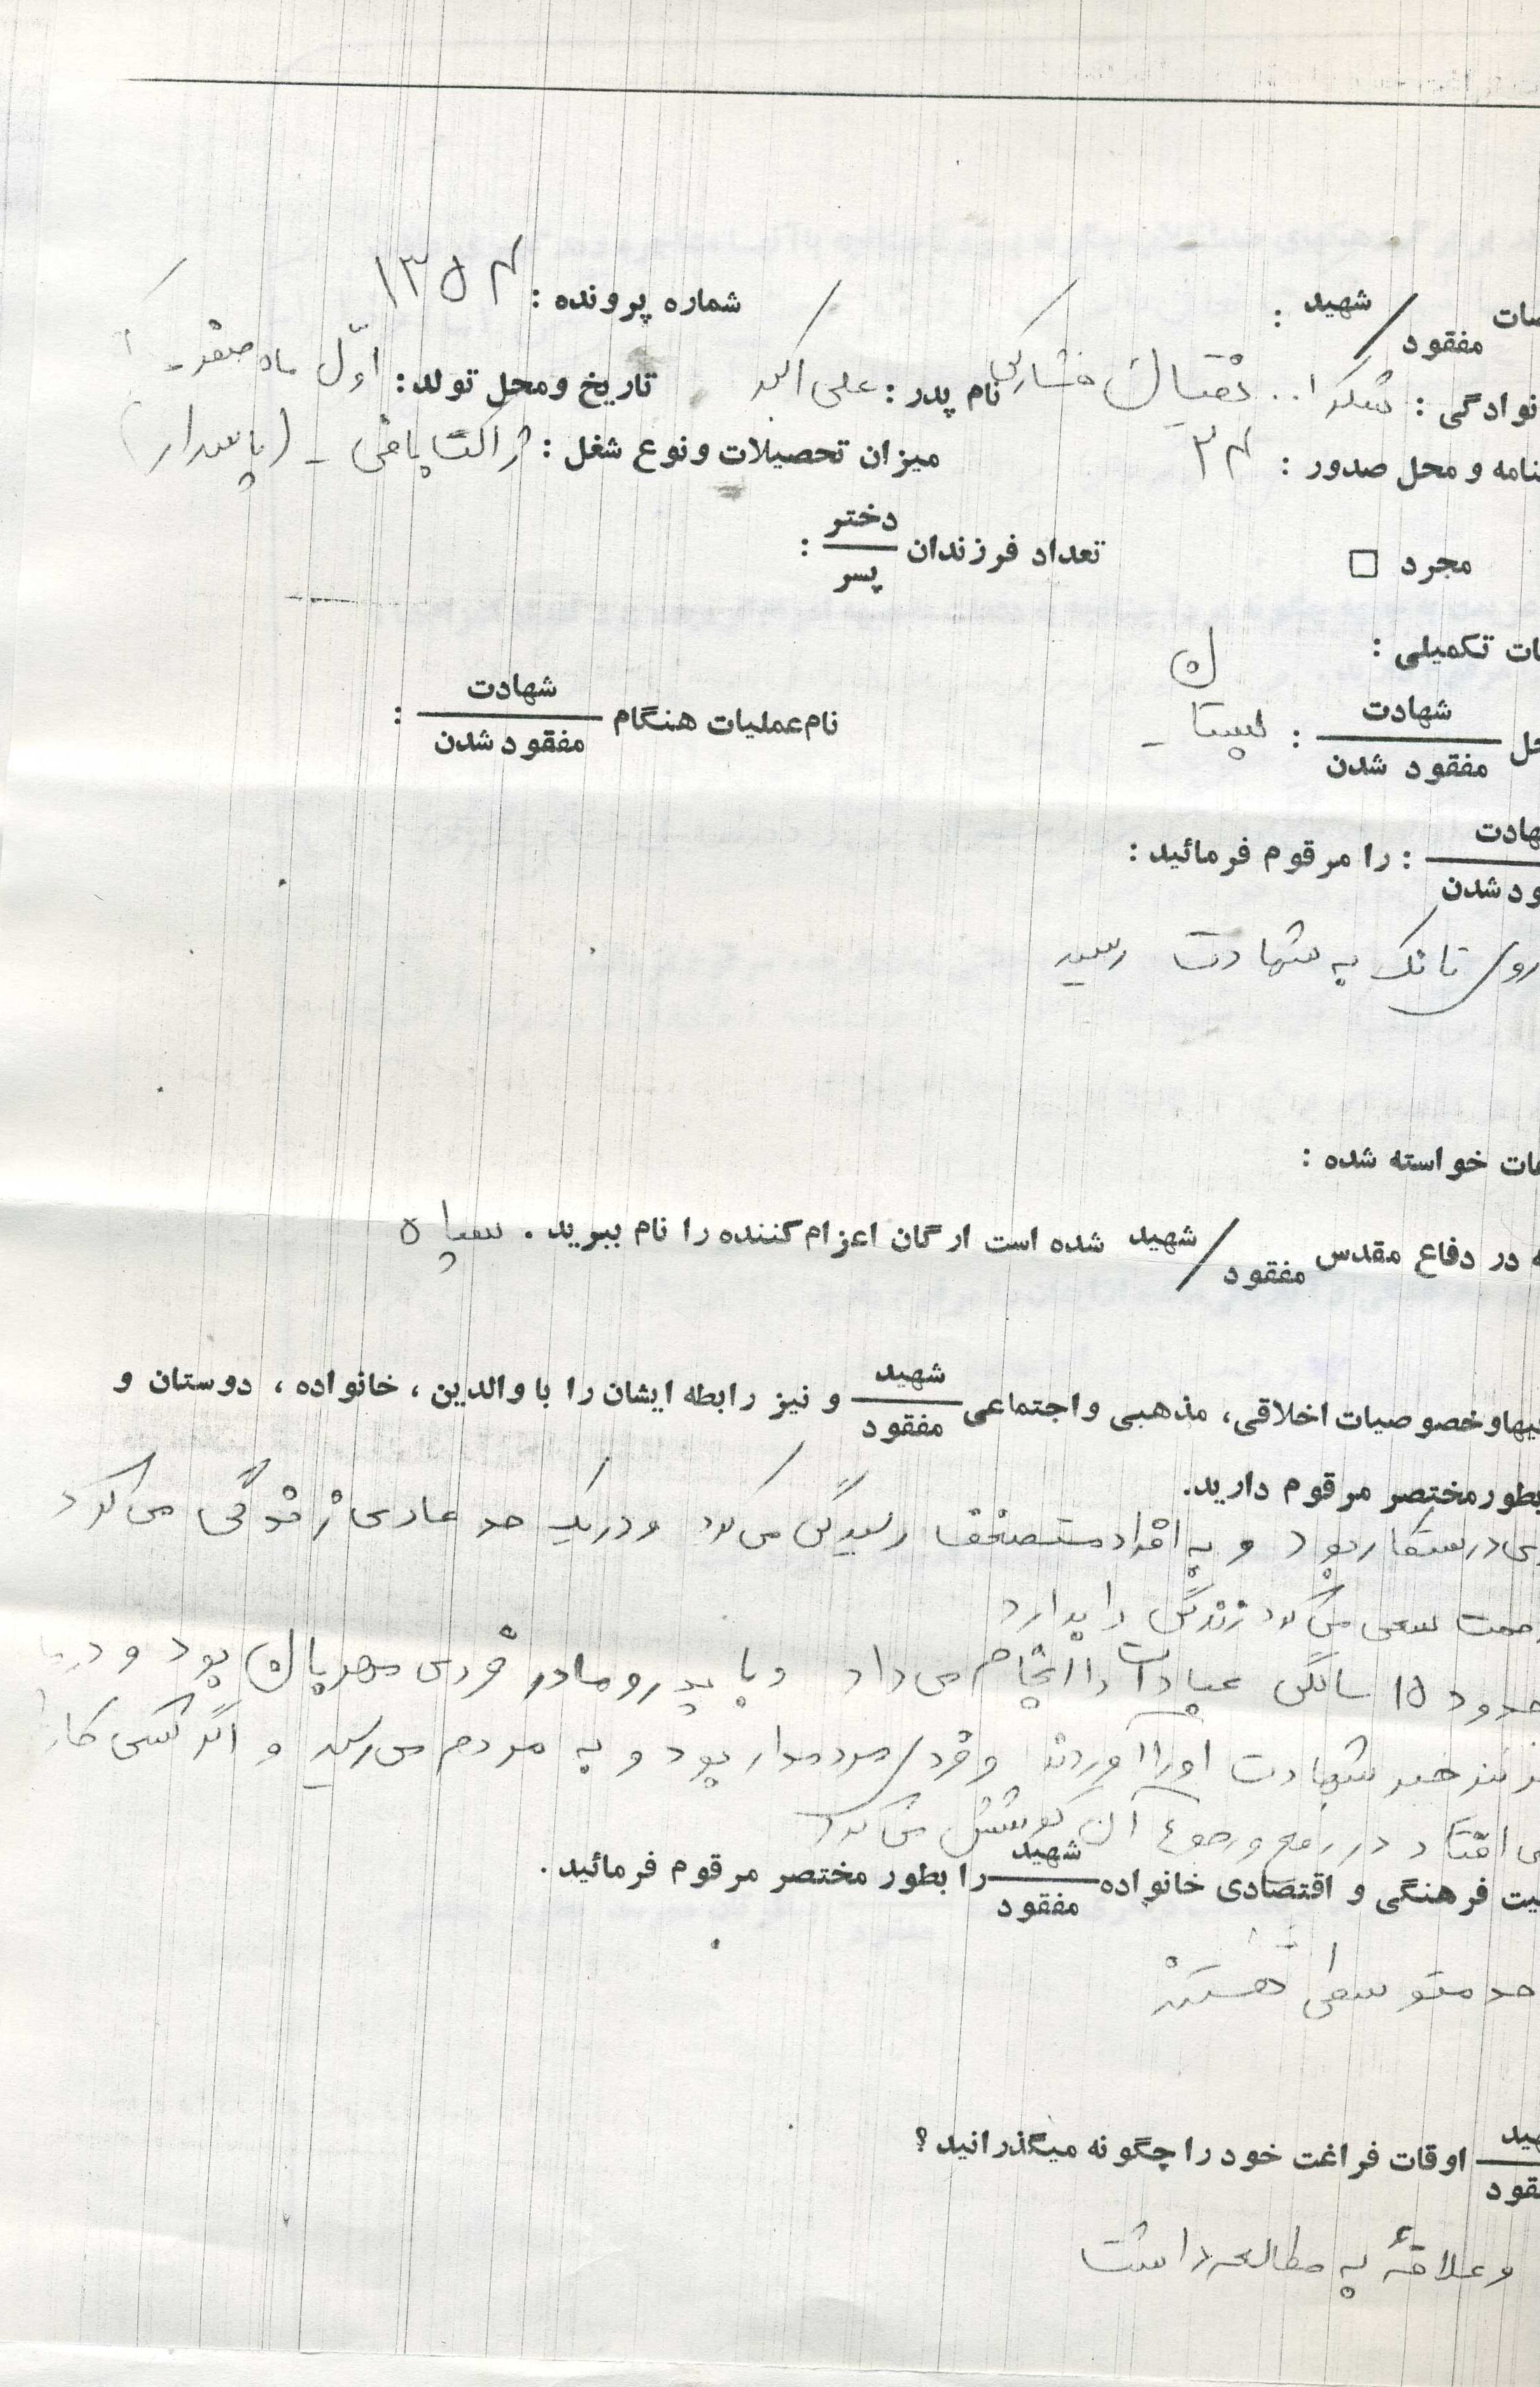 صات شهید / مفقود : شماره پرونده : ۱۳۵۴
نوادگی : شکرا.. دهقیان فشارکی نام پدر : علی اکبر تاریخ ومحل تولد : اوّل ماه صفر -
نامه و محل صدور : ۳۴ میزان تحصیلات ونوع شغل : ژاکت بافی - (پاسدار)
مجرد □ تعداد فرزندان دختر / پسر :
ات تکمیلی :
حل شهادت / مفقود شدن : بستان - نام عملیات هنگام شهادت / مفقود شدن :
هادت / ود شدن : را مرقوم فرمائید :
روی تانک به شهادت رسید
ات خواسته شده :
ه در دفاع مقدس شهید / مفقود شده است ارگان اعزام کننده را نام ببرید . سپاه
یهاوخصوصیات اخلاقی، مذهبی واجتماعی شهید / مفقود و نیز رابطه ایشان را با والدین ، خانواده ، دوستان و
بطورمختصر مرقوم دارید.
درستکار بود و به افراد مستضعف رسیدگی می‌کرد و در یک حد عادی زندگی می‌کرد
سعی می‌کرد زندگی را
حدود ۱۵ سالگی عبادات را انجام می‌داد و با پدر و مادر فردی مهربان بود و
خبر شهادت او را آوردند و فردی مردمدار بود و به مردم می‌رسید و اگر کسی
افتاد در رفع و رجوع آن کوشش می‌کرد
یت فرهنگی و اقتصادی خانواده شهید / مفقود را بطور مختصر مرقوم فرمائید .
حد متوسطی هستند
هید / قود اوقات فراغت خود را چگونه میگذرانید ؟
و علاقهٔ به مطالعه داشت